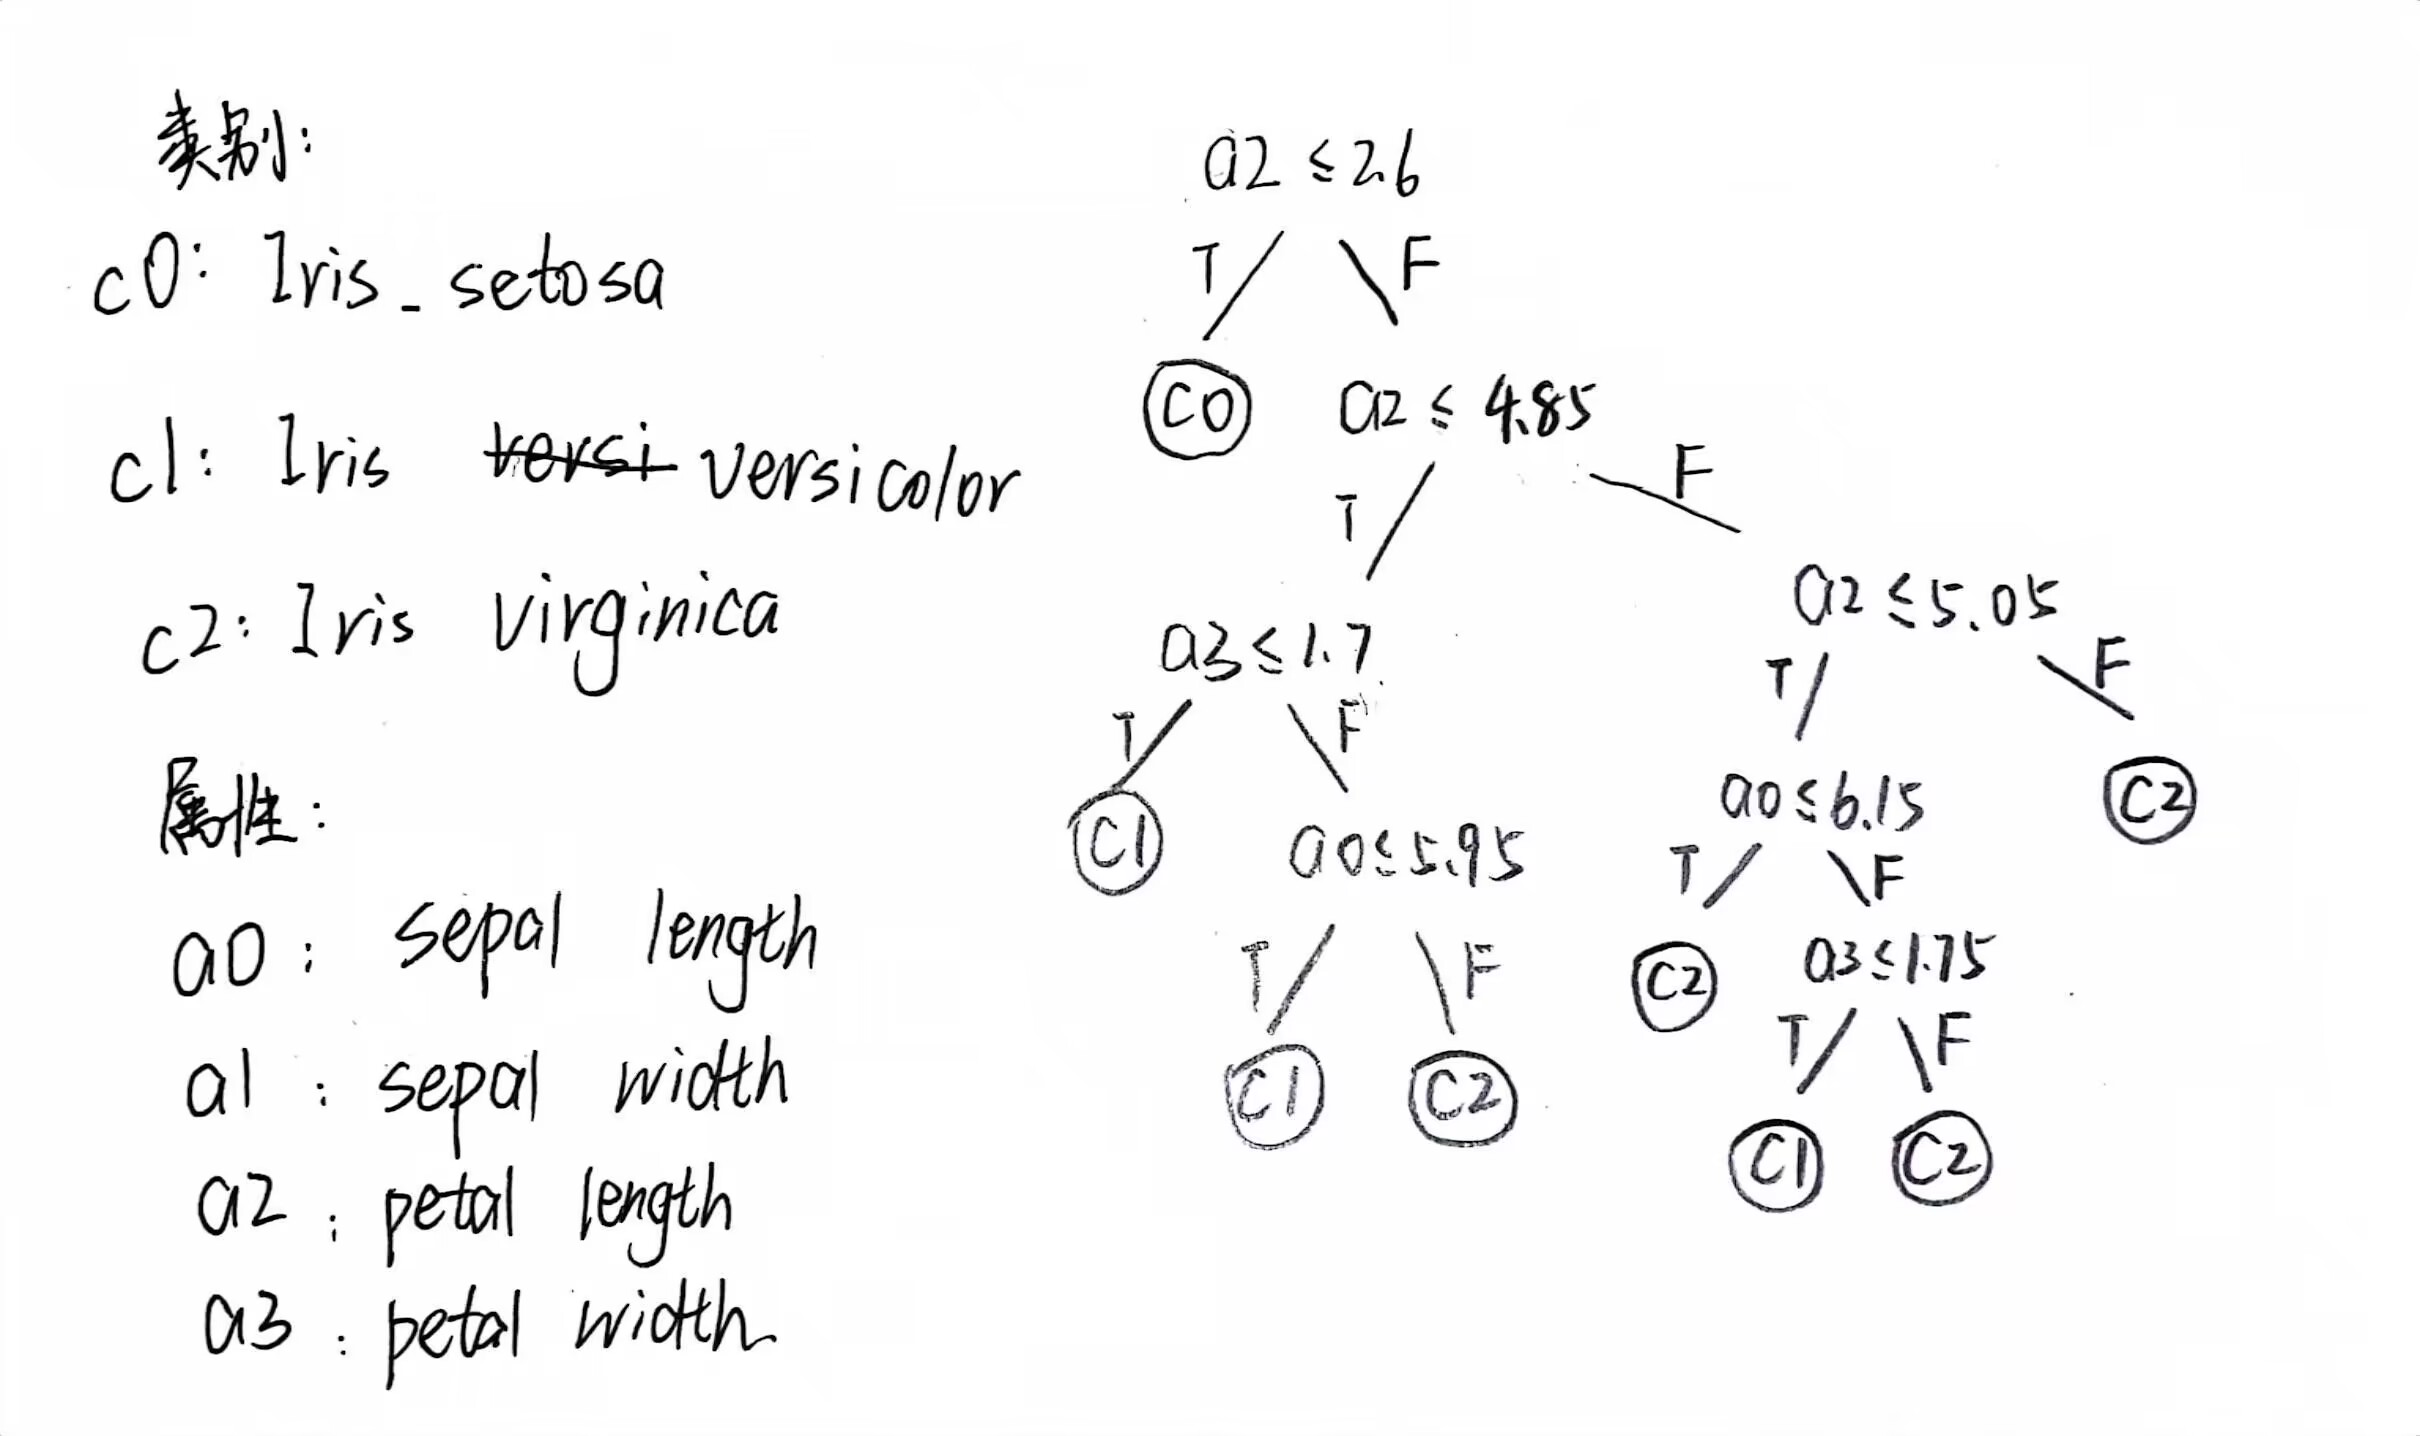 类别:
c0: Iris_setosa
c1: Iris versi versicolor
c2: Iris virginica
属性:
a0: sepal length
a1: sepal width
a2: petal length
a3: petal width
a2 ≤ 2.6
T F
C0 a2 ≤ 4.85
T F
a3 ≤ 1.7 a2 ≤ 5.05
T F T F
C1 a0 ≤ 5.95 a0 ≤ 6.15 C2
T F T F
C1 C2 C2 a3 ≤ 1.75
T F
C1 C2